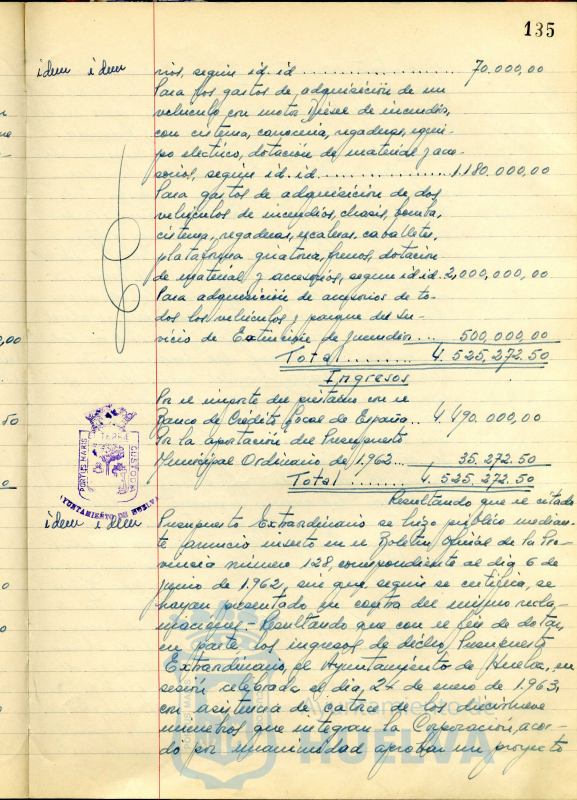 135
idem idem
rios, segun id. id. .................. 70.000,00
Para los gastos de adquisición de un
vehiculo con motor Diésel de incendios,
con cisterna, carroceria, regaderas, equi-
po electrico, dotación de material y acce-
sorios, segun id. id. .................. 1.180.000,00
Para gastos de adquisición de dos
vehiculos de incendios, chasis, bomba,
cisterna, regaderas, escaleras, caballetes,
plataforma giratoria, frenos, dotación
de material y accesorios, segun id. id. 2,000.000,00
Para adquisición de accesorios de to-
dos los vehiculos y parque del Ser-
vicio de Extinción de Incendios ... 500.000,00
Total ......... 4.525,272.50
Ingresos
Por el importe del préstamo con el
Banco de Crédito Local de España .. 4.490.000,00
Por la aportación del Presupuesto
Municipal Ordinario de 1.962 ... 35.272.50
Total ......... 4.525,272.50
PORTUS MARIS ET TERRAE CUSTODIA
AYUNTAMIENTO DE HUELVA
Resultando que el citado
idem idem
Presupuesto Extraordinario se hizo público median-
te anuncio inserto en el Boletin Oficial de la Pro-
vincia número 128, correspondiente al dia 6 de
junio de 1.962, sin que, segun se certifica, se
hayan presentado en contra del mismo recla-
maciones.- Resultando que con el fin de dotar,
en parte, los ingresos de dicho Presupuesto
Extraordinario, el Ayuntamiento de Huelva, en
sesión celebrada el dia, 24 de enero de 1.963,
con asistencia de catorce de los diecinueve
miembros que integran la Corporación, acor-
do por unanimidad aprobar un proyecto
Ayuntamiento de
HUELVA